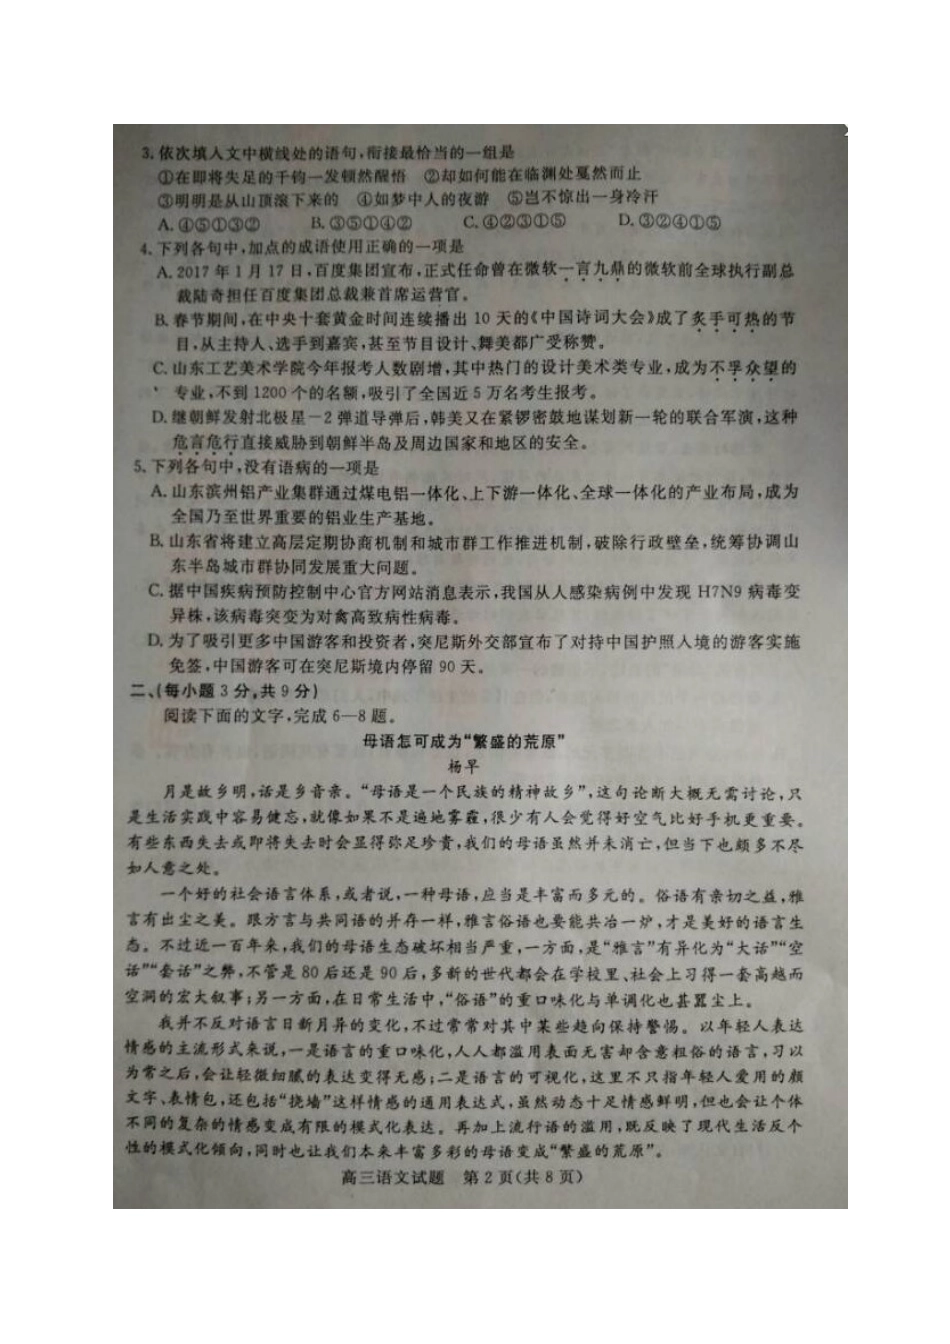 3.依次填入文中横线处的语句,衔接最恰当的一组是
①在即将失足的千钧一发顿然醒悟 ②却如何能在临渊处戛然而止
③明明是从山顶滚下来的 ④如梦中人的夜游 ⑤岂不惊出一身冷汗
A.④⑤①③② B.③⑤①④② C.④②③①⑤ D.③②④①⑤
4.下列各句中,加点的成语使用正确的一项是
A.2017年1月17日,百度集团宣布,正式任命曾在微软一言九鼎的微软前全球执行副总
裁陆奇担任百度集团总裁兼首席运营官。
B.春节期间,在中央十套黄金时间连续播出10天的《中国诗词大会》成了炙手可热的节
目,从主持人、选手到嘉宾,甚至节目设计、舞美都广受称赞。
C.山东工艺美术学院今年报考人数剧增,其中热门的设计美术类专业,成为不孚众望的
专业,不到1200个的名额,吸引了全国近5万名考生报考。
D.继朝鲜发射北极星—2弹道导弹后,韩美又在紧锣密鼓地谋划新一轮的联合军演,这种
危言危行直接威胁到朝鲜半岛及周边国家和地区的安全。
5.下列各句中,没有语病的一项是
A.山东滨州铝产业集群通过煤电铝一体化、上下游一体化、全球一体化的产业布局,成为
全国乃至世界重要的铝业生产基地。
B.山东省将建立高层定期协商机制和城市群工作推进机制,破除行政壁垒,统筹协调山
东半岛城市群协同发展重大问题。
C.据中国疾病预防控制中心官方网站消息表示,我国从人感染病例中发现H7N9病毒变
异株,该病毒突变为对禽高致病性病毒。
D.为了吸引更多中国游客和投资者,突尼斯外交部宣布了对持中国护照入境的游客实施
免签,中国游客可在突尼斯境内停留90天。
二、(每小题3分,共9分)
阅读下面的文字,完成6—8题。
母语怎可成为“繁盛的荒原”
杨早
月是故乡明,话是乡音亲。“母语是一个民族的精神故乡”,这句论断大概无需讨论,只
是生活实践中容易健忘,就像如果不是遍地雾霾,很少有人会觉得好空气比好手机更重要。
有些东西失去或即将失去时会显得弥足珍贵,我们的母语虽然并未消亡,但当下也颇多不尽
如人意之处。
一个好的社会语言体系,或者说,一种母语,应当是丰富而多元的。俗语有亲切之益,雅
言有出尘之美。跟方言与共同语的并存一样,雅言俗语也要能共冶一炉,才是美好的语言生
态。不过近一百年来,我们的母语生态破坏相当严重,一方面,是“雅言”有异化为“大话”“空
话”“套话”之弊,不管是80后还是90后,多新的世代都会在学校里、社会上习得一套高越而
空洞的宏大叙事;另一方面,在日常生活中,“俗语”的重口味化与单调化也甚嚣尘上。
我并不反对语言日新月异的变化,不过常常对其中某些趋向保持警惕。以年轻人表达
情感的主流形式来说,一是语言的重口味化,人人都滥用表面无害却含意粗俗的语言,习以
为常之后,会让轻微细腻的表达变得无感;二是语言的可视化,这里不只指年轻人爱用的颜
文字、表情包,还包括“挠墙”这样情感的通用表达式,虽然动态十足情感鲜明,但也会让个体
不同的复杂的情感变成有限的模式化表达。再加上流行语的滥用,既反映了现代生活反个
性的模式化倾向,同时也让我们本来丰富多彩的母语变成“繁盛的荒原”。
高三语文试题 第2页(共8页)